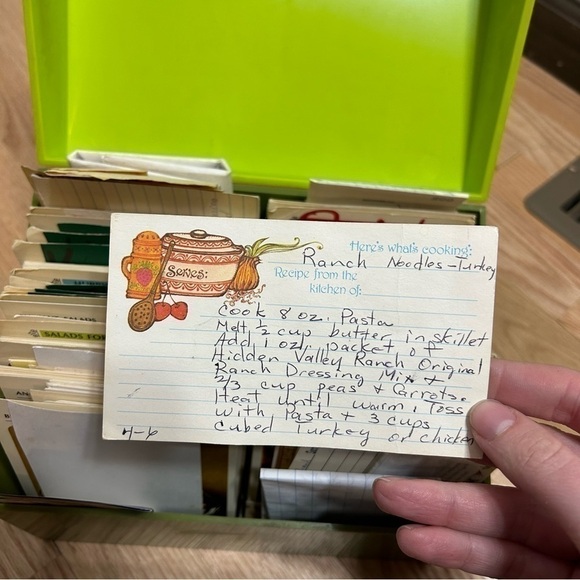 Here's what's cooking:
Ranch Noodles - Turkey
Serves:
Recipe from the
kitchen of:
Cook 8 oz. Pasta
Melt 1/2 cup butter in skillet
Add 1 oz. packet of
Hidden Valley Ranch Original
Ranch Dressing Mix +
2/3 cup peas + Carrots.
Heat until warm. Toss
with Pasta + 3 cups
cubed Turkey or chicken
4-6
SALADS
SALADS FO